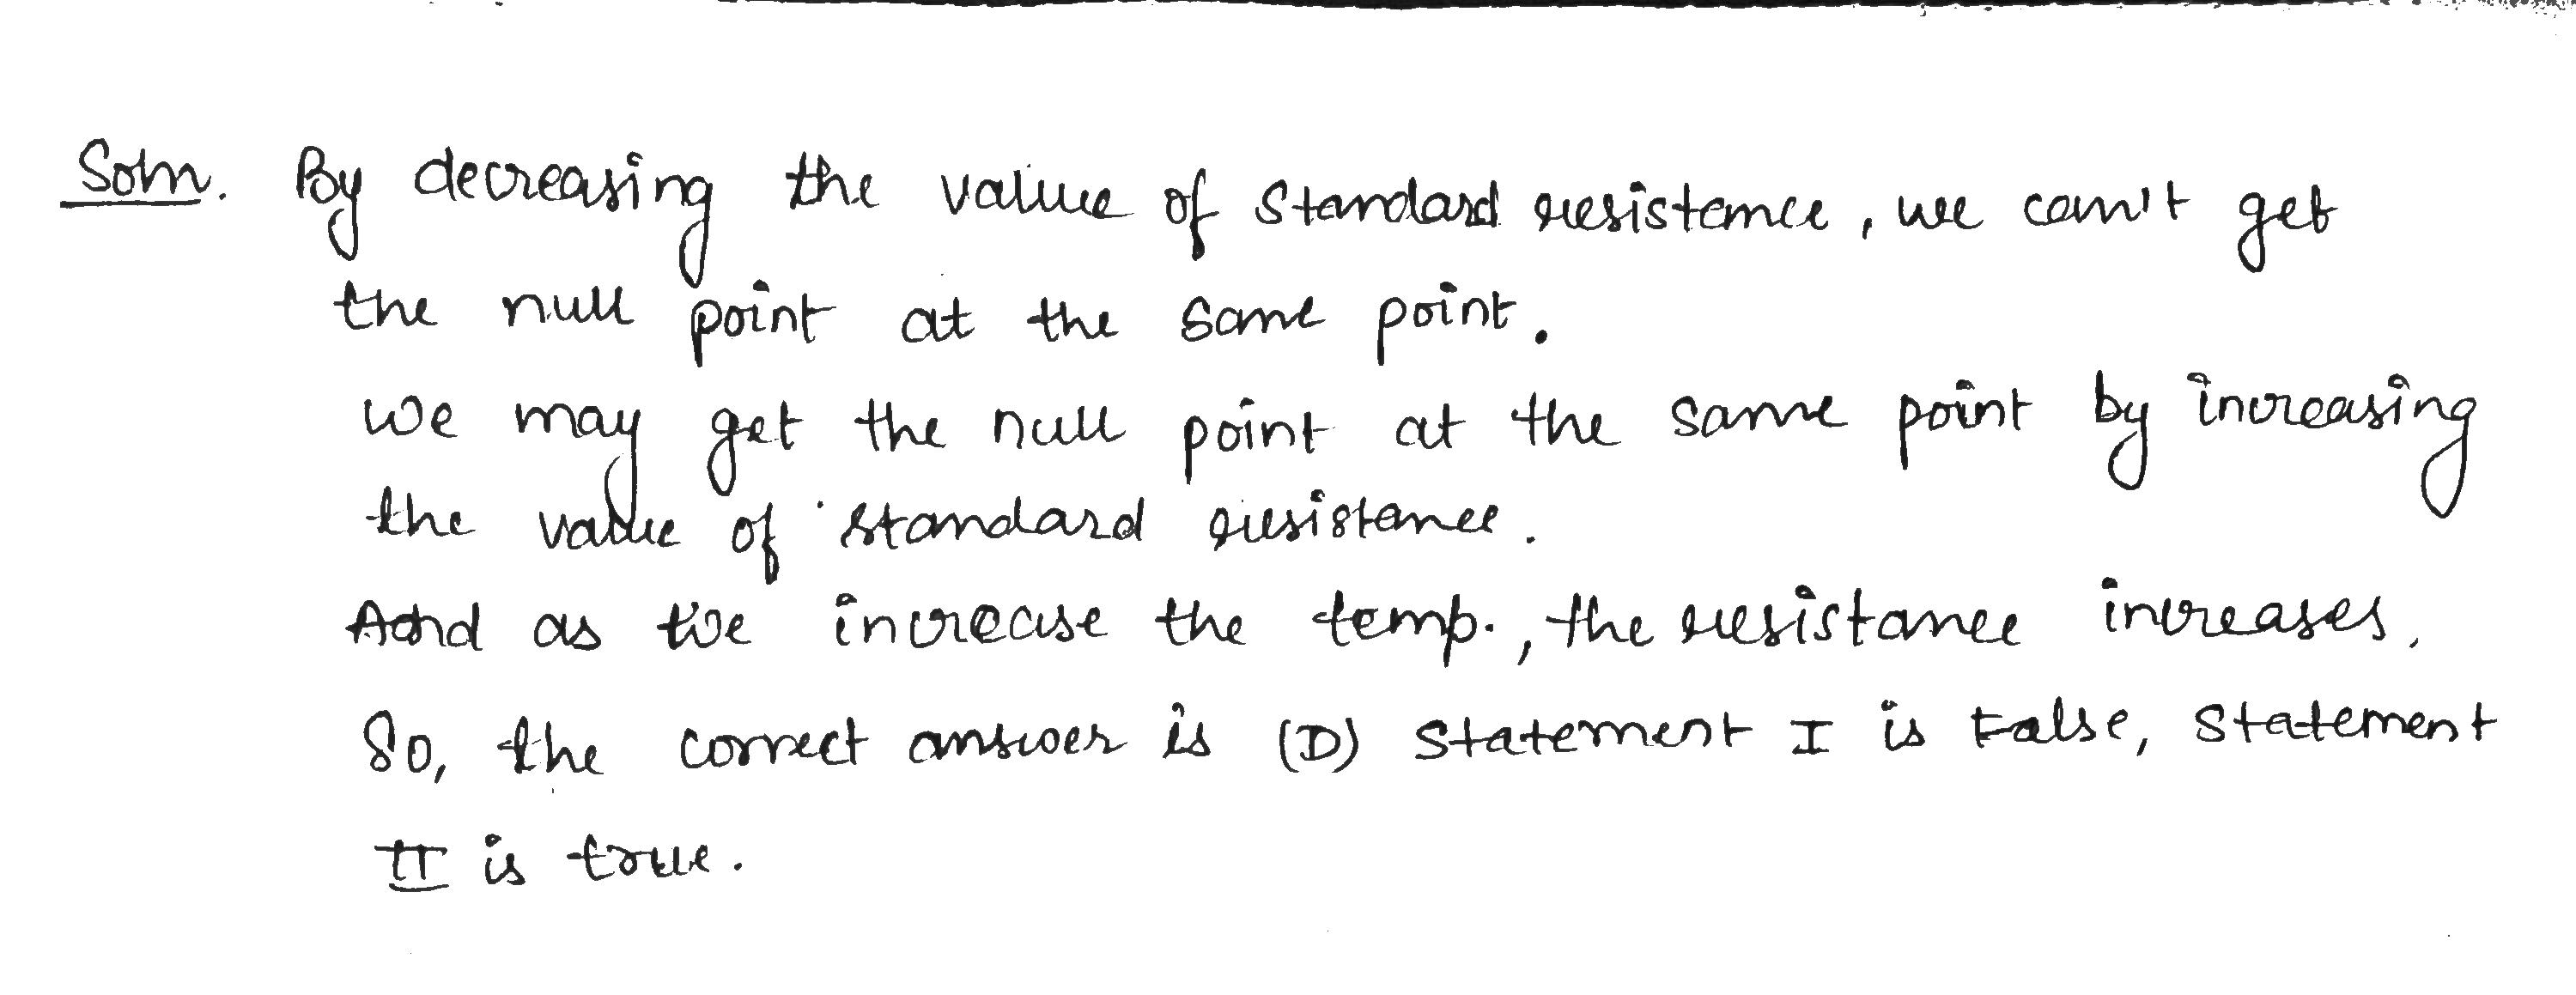 Soln. By decreasing the value of standard resistance, we can't get
the null point at the same point.
We may get the null point at the same point by increasing
the value of standard resistance.
And as we increase the temp., the resistance increases.
So, the correct answer is (D) Statement I is False, Statement
II is true.